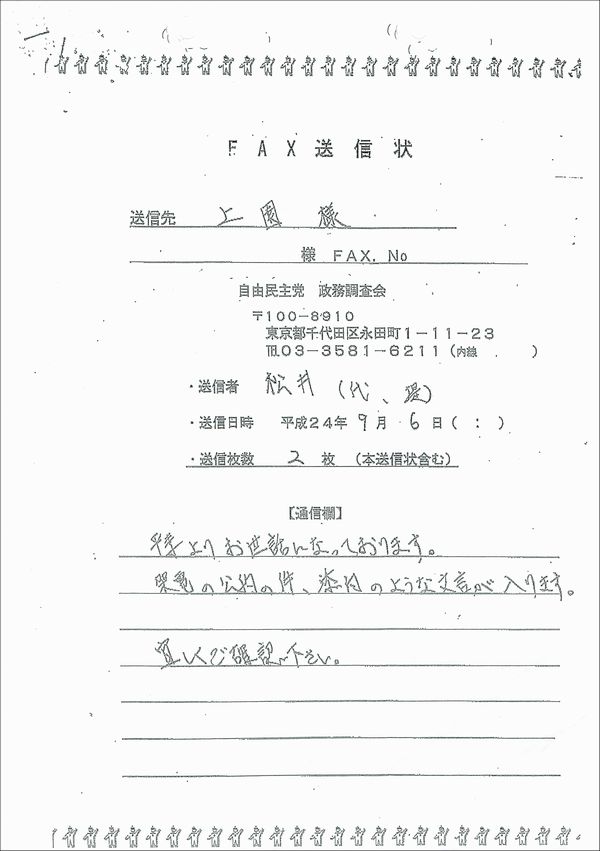 FAX送信状
送信先 上園 様
様 FAX. No
自由民主党 政務調査会
〒100-8910
東京都千代田区永田町1-11-23
℡03-3581-6211(内線 )
・送信者 松井(代、堤)
・送信日時 平成24年9月6日( : )
・送信枚数 2枚 (本送信状含む)
【通信欄】
平素よりお世話になっております。
の公約の件、添付のような文言が入ります。
宜しくご確認下さい。